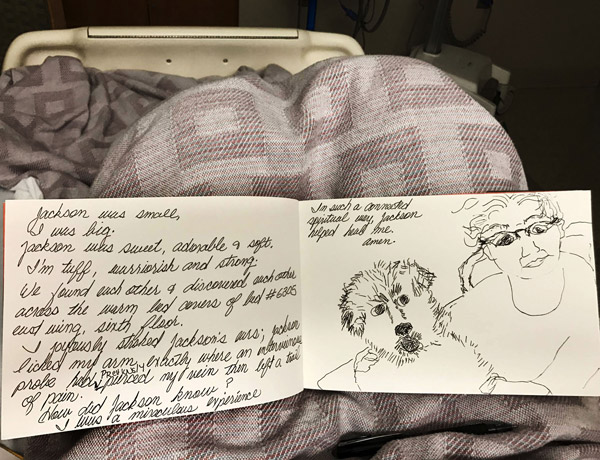 Jackson was small,
I was big.
Jackson was sweet, adorable & soft.
I'm tuff, warriorish and strong.
We found each other & discovered each other
across the warm bed covers of bed #6305
east wing, sixth floor.
I joyously stroked Jackson's ears; Jackson
licked my arm exactly where an intervenious
probe had PREVIOUSLY pierced my vein then left a trail
of pain.
How did Jackson know?
I was a miraculous experience
In such a connected
spiritual way, Jackson
helped heal me.
amen.